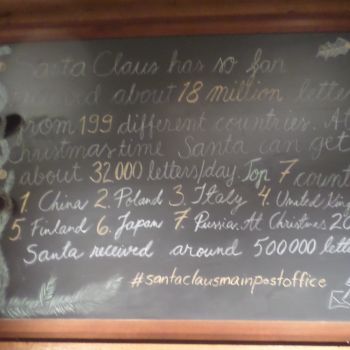 Santa Claus has so far
received about 18 million letters
from 199 different countries. At
Christmas time Santa can get
about 32 000 letters/day. Top 7
1 China 2. Poland 3. Italy 4. United
5. Finland 6. Japan 7. Russia. At Christmas 20
Santa received around 500 000
#santaclausmainpostoffice